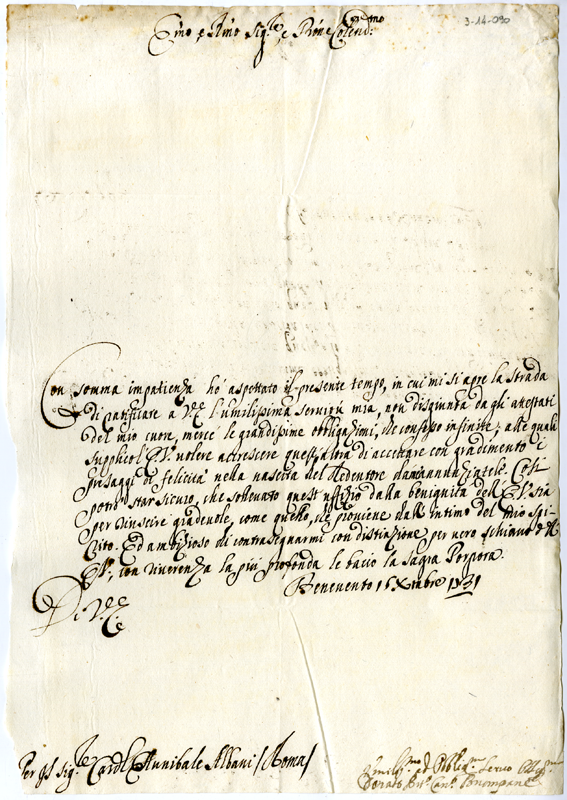 3-14-090
Em̃o, e Rm̃o Sig.re, e Prõne Colend.mo
Con somma impatienza hò aspettato il presente tempo, in cui mi si apre la strada
di ratificare a V.E. l'umilissima servitù mia, non disgiunta da gli attestati
del mio cuore, mercè le grandissime obbligazioni, che confesso infinite; alle quali
supplico l'E.V. volere accrescere quest'altra di accettare con gradimento i
presaggi di felicità nella nascita del Redentore Così
potrò star sicuro, che sollevato quest'uffizio dalla benignità dell'E.V. sia
per riuscire gradevole, come quello, che proviene dall'intimo del mio Spi-
rito. Ed ambizioso di contrasegnarmi con distinzione per vero schiavo di
E.V. con riverenza la più profonda le bacio la Sagra Porpora.
Benevento 15 Xmbre 1731
Di V.E.
Per il Sig.re Card.l Annibale Albani / Roma /
Umiliss.mo ed Obblig.mo Servo
Donato Can.